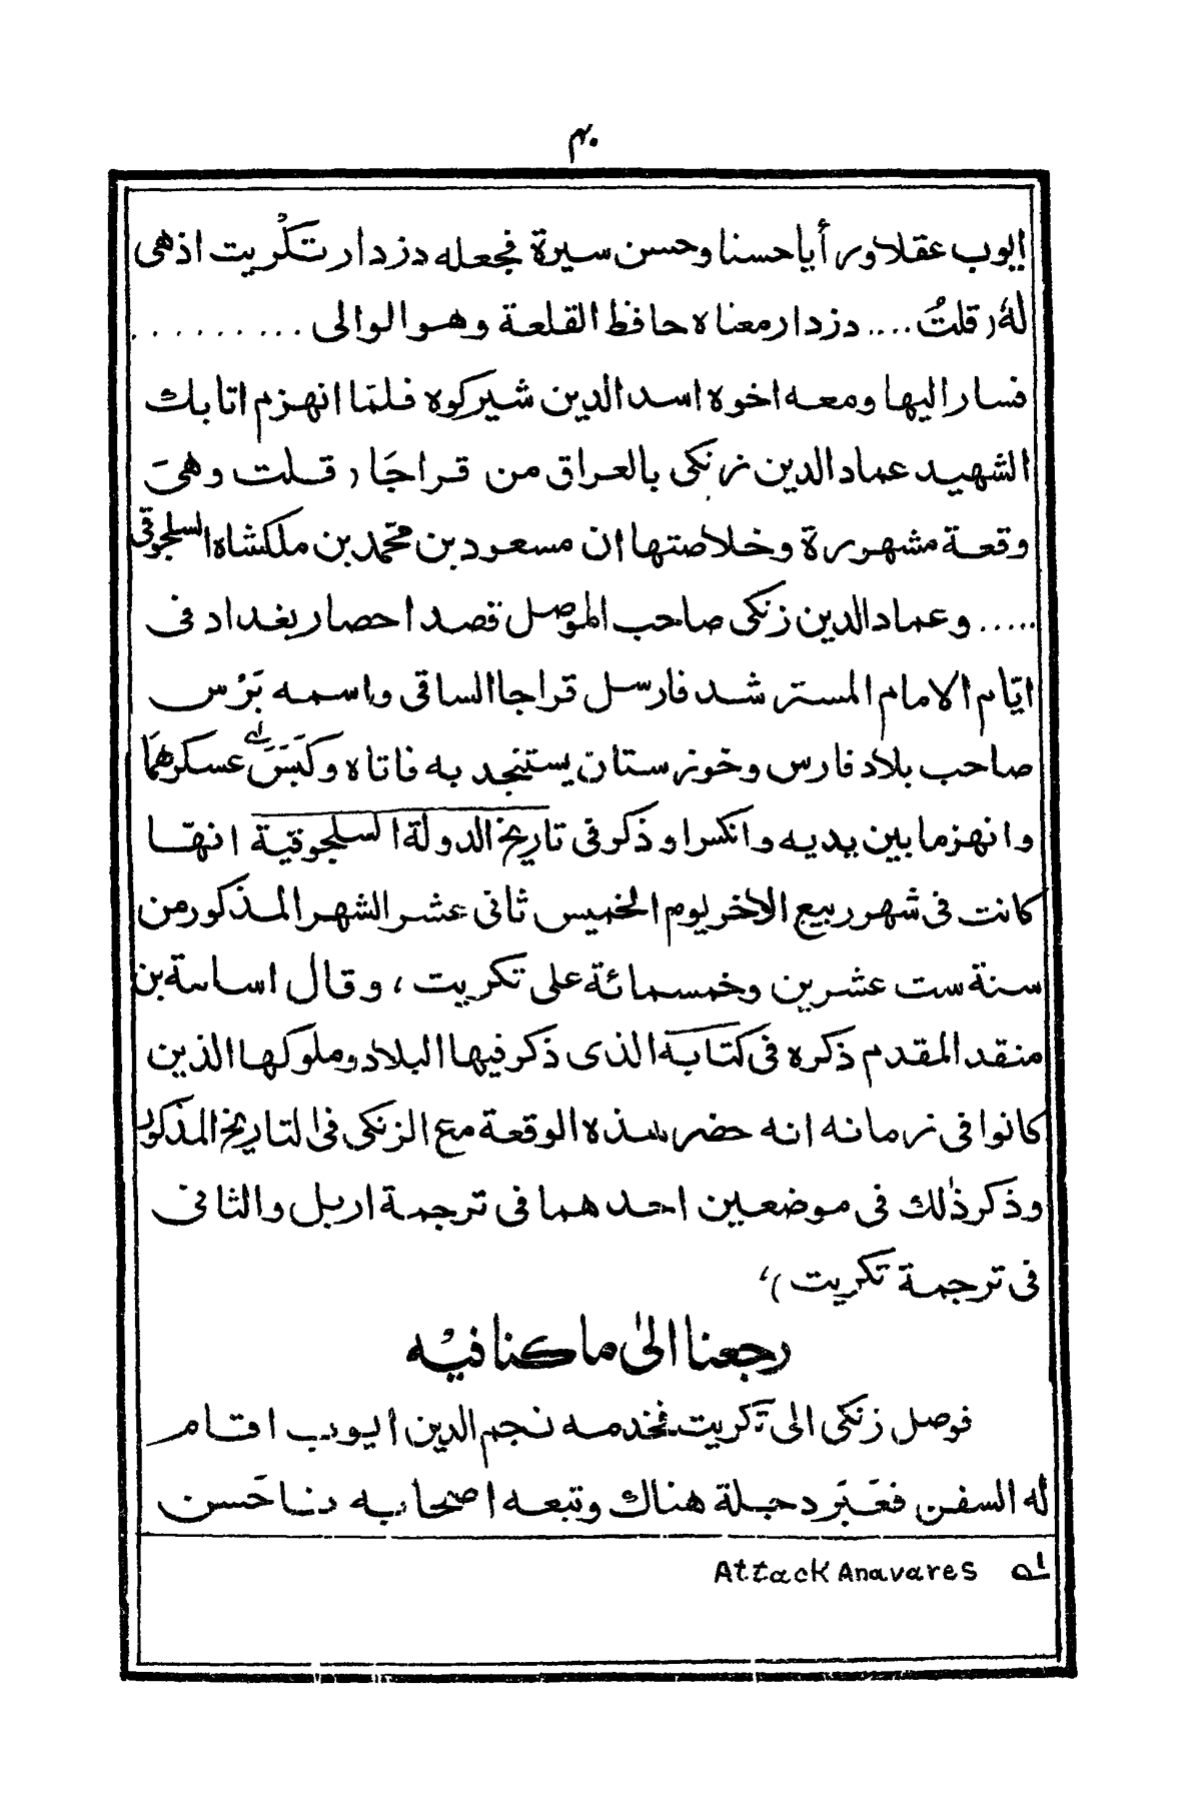 ۴۰
ايوب عقلا ورأيا حسنا وحسن سيرة فجعله دزدار تكريت اذ هى
لهٗ (قلتُ .... دزدار معناه حافظ القلعة وهو الوالى ..........
فسار اليها ومعه اخوه اسد الدين شيركوه فلمّا انهزم اتابك
الشهيد عماد الدين زنكى بالعراق من قراجَا (قلت وهىَ
وقعة مشهورة وخلاصتها ان مسعود بن محمّد بن ملكشاه السلجوقى
..... وعماد الدين زنكى صاحب الموصل قصدا حصار بغداد فى
ايّام الامام المسترشد فارسل قراجا الساقى واسمه بَرْس
صاحب بلاد فارس وخوزستان يستنجد به فاتاه وكَبَسَ لٰه عسكرهمَا
وانهزما بين يديه وانكسرا وذكر فى تاريخ الدولة السلجوقية انهّا
كانت فى شهر ربيع الاخر يوم الخميس ثانى عشر الشهر المذكور من
سنة ست عشرين وخمسمائة على تكريت، وقال اسامة بن
منقد المقدم ذكره فى كتابه الذى ذكر فيها البلاد وملوكها الذين
كانوا فى زمانه انه حضر هذه الوقعة مع الزنكى فى التاريخ المذكور
وذكر ذٰلك فى موضعين احدهما فى ترجمة اربل والثانى
فى ترجمة تكريت)،
رجعنا الىٰ ما كنا فيْه
فوصل زنكى الى تكريت فخدمه نجم الدين ايوب اقام
له السفن فعَبَر دجلة هناك وتبعه اصحابه دنا حَسن
لٰه Attack Anavares